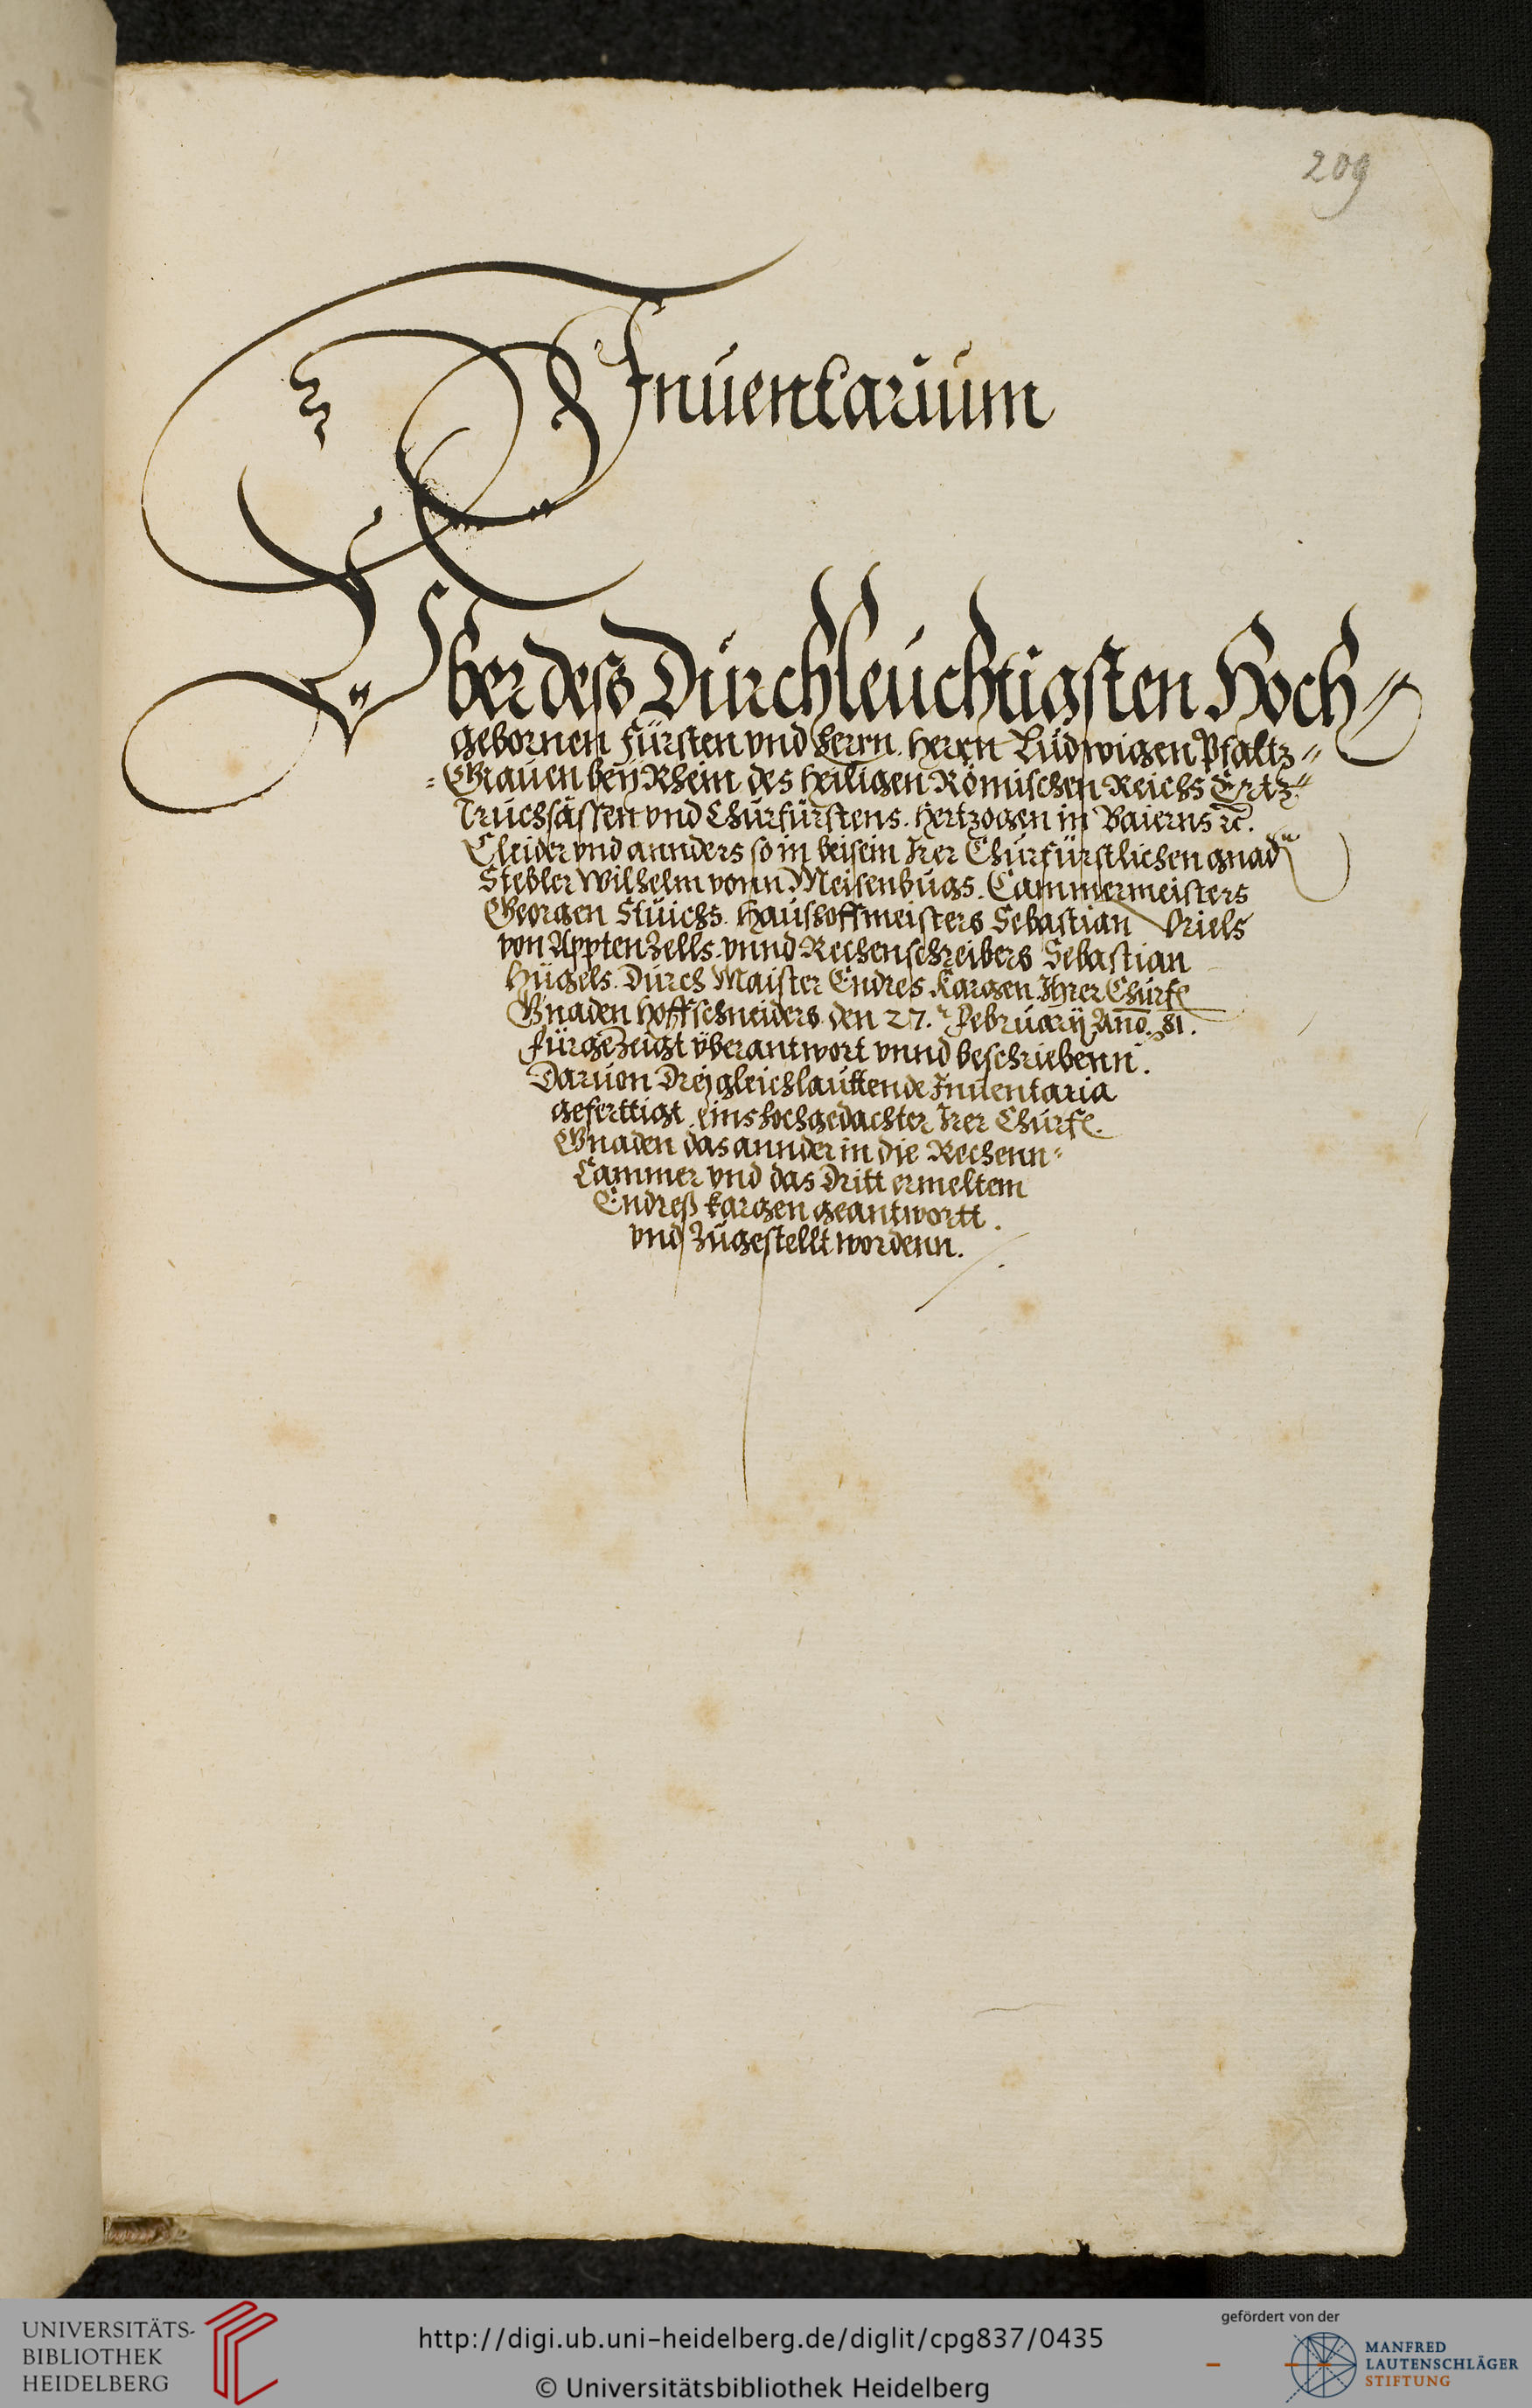 209
Inuentarium
Vber deß Durchleuchtigsten Hoch=
gebornen Fürsten vnd Herrn. Herrn Ludwigen Pfaltz=
=Grauen beÿ Rhein des heiligen Römischen Reichs Ertz=
Truchsässen vnd Churfürstens. Hertzogen in Baierns ꝛc.
Cleider vnd annders so in beisein Irer Churfürstlichen gnadn
Stebler Wilhelm vonn Meisenbugs. Cammermeisters
Georgen Stuichs. Haushoffmeisters Sebastian Vriels
von Appten Zells. vnnd Rechenschreibers Sebastian
Hügels. Durch Maister Endres Kargen Ihrer Churf.
Gnaden Hoffschneiders den 27. Februarÿ Ano. 81.
fürgezeigt überantwort vnnd beschriebenn.
Daruon Dreÿ gleichlauttende Inuentaria
geferttigt, eins hochgedachter Irer Churf.
Gnaden das annder in die Rechenn=
Cammer vnd das dritt ermeltem
Endreß Kargen geantwortt.
vnd zugestellt wordenn.
UNIVERSITÄTS-
BIBLIOTHEK
HEIDELBERG
http://digi.ub.uni-heidelberg.de/diglit/cpg837/0435
© Universitätsbibliothek Heidelberg
gefördert von der
MANFRED
LAUTENSCHLÄGER
STIFTUNG